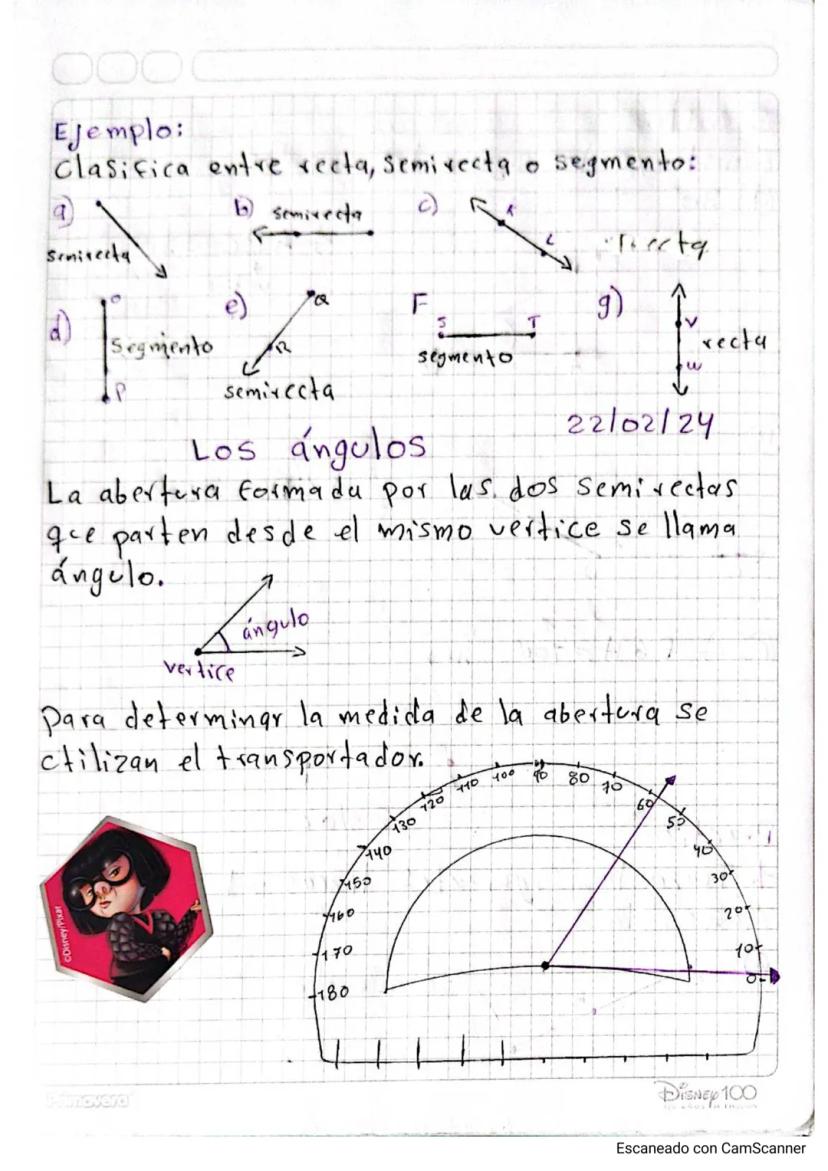 Ejemplo:
Clasifica entre recta, semirecta o segmento:
a)
semirecta
b) semirecta
c) K
L
recta
d) O
segmento
P
e) Q
R
semirecta
F
S T
segmento
g)
V
recta
W
22/02/24
Los ángulos
La abertura formada por las dos semirectas
que parten desde el mismo vertice se llama
ángulo.
ángulo
vertice
Para determinar la medida de la abertura se
utilizan el transportador.
180 170 160 150 140 130 120 110 100 90 80 70 60 50 40 30 20 10 0
©Disney/Pixar
Primavera
Disney 100
Escaneado con CamScanner